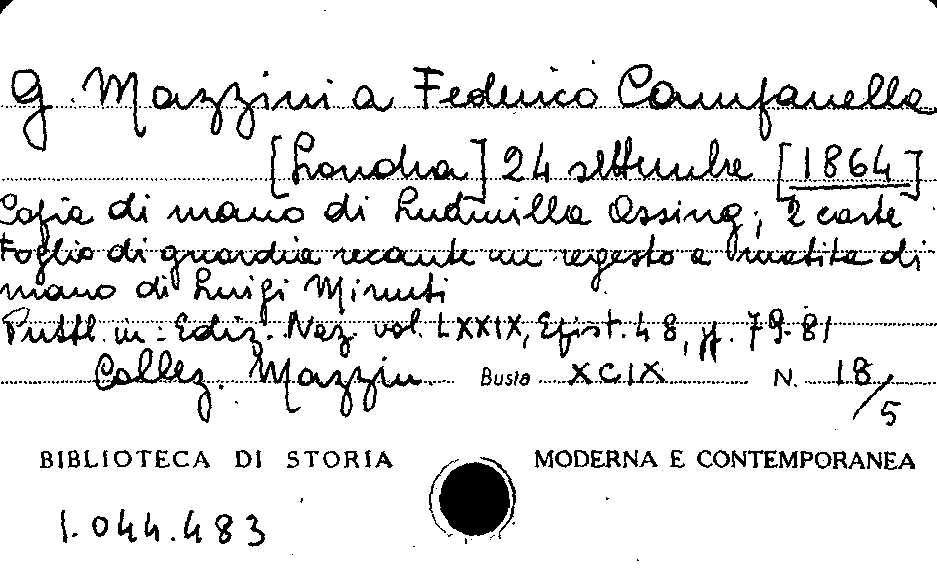 G. Mazzini a Federico Campanella
[Londra] 24 settembre [1864]
Copia di mano di Ludmilla Assing; 2 carte
Foglio di guardia recante un regesto a matita di
mano di Luigi Minuti
Pubbl. in: Ediz. Naz. vol. LXXIX, Epist. 48, pp. 79-81
Collez. Mazzin. Busta XCIX N. 18/5
BIBLIOTECA DI STORIA MODERNA E CONTEMPORANEA
1.044.483